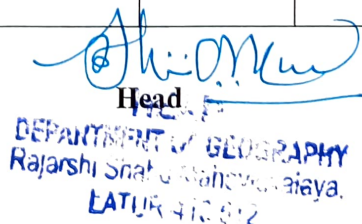 Head
HEAD
DEPARTMENT OF GEOGRAPHY
Rajarshi Shahu Mahavidyalaya,
LATUR 413 512